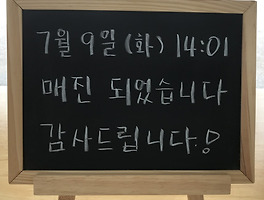 7월 9일 (화) 14:01
매진 되었습니다
감사드립니다!